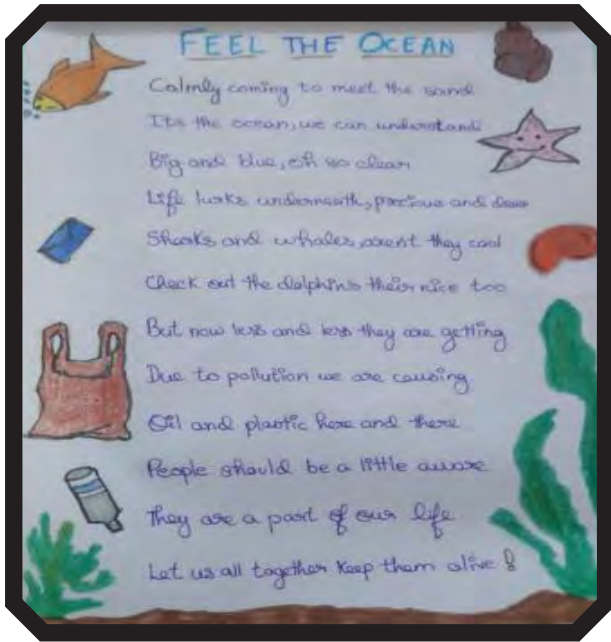 FEEL THE OCEAN
Calmly coming to meet the sand
Its the ocean, we can understand
Big and blue, oh so clear
Life lurks underneath, precious and dear
Sharks and whales, arent they cool
Check out the dolphins their nice too
But now less and less they are getting
Due to pollution we are causing
Oil and plastic here and there
People should be a little aware
They are a part of our life
Let us all together keep them alive!